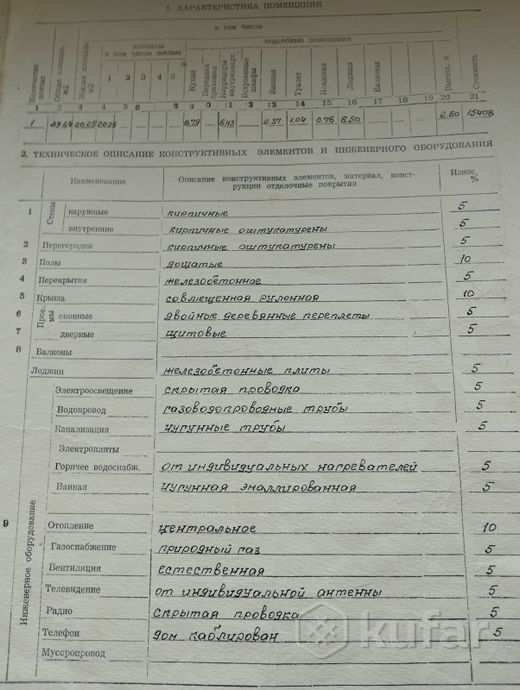 1. ХАРАКТЕРИСТИКА ПОМЕЩЕНИЯ
в том числе
комнаты
в том числе жилые
подсобные помещения
Количество комнат
Общая площадь, м2
Жилая площадь м2
1 2 3 4 5
Кухня
Коридоры внутриварт.
Встроенные шкафы
Ванная
Туалет
Кладовая
Лоджия
Балконы
Высота, м.
Стоимость
1 2 3 4 5 6 8 9 0 11 12 13 14 15 16 17 18 19 20 21
1 20.25 8.79 6.43 2.37 1.04 0.76 6.50 2.50 15408
2. ТЕХНИЧЕСКОЕ ОПИСАНИЕ КОНСТРУКТИВНЫХ ЭЛЕМЕНТОВ И ИНЖЕНЕРНОГО ОБОРУДОВАНИЯ
Наименование Описание конструктивных элементов, материал, конст- Износ
рукции отделочные покрытия %
1 Стены наружные кирпичные 5
внутренние кирпичные оштукатурены 5
2 Перегородки кирпичные оштукатурены 5
3 Полы дощатые 10
4 Перекрытия железобетонное 5
5 Крыша совмещенная рулонная 10
6 Прое- мы оконные двойные деревянные переплеты 5
7 дверные щитовые 5
8 Балконы
Лоджии железобетонные плиты 5
Электроосвещение скрытая проводка 5
Водопровод газоводопроводные трубы 5
Канализация чугунные трубы 5
Электроплиты
Горячее водоснабж. от индивидуальных нагревателей 5
Ванная чугунная эмаллированная 5
9 Инженерное оборудование
Отопление центральное 10
Газоснабжение природный газ 5
Вентиляция естественная 5
Телевидение от индивидуальной антенны 5
Радио скрытая проводка 5
Телефон дом каблирован 5
Мусоропровод
kufar